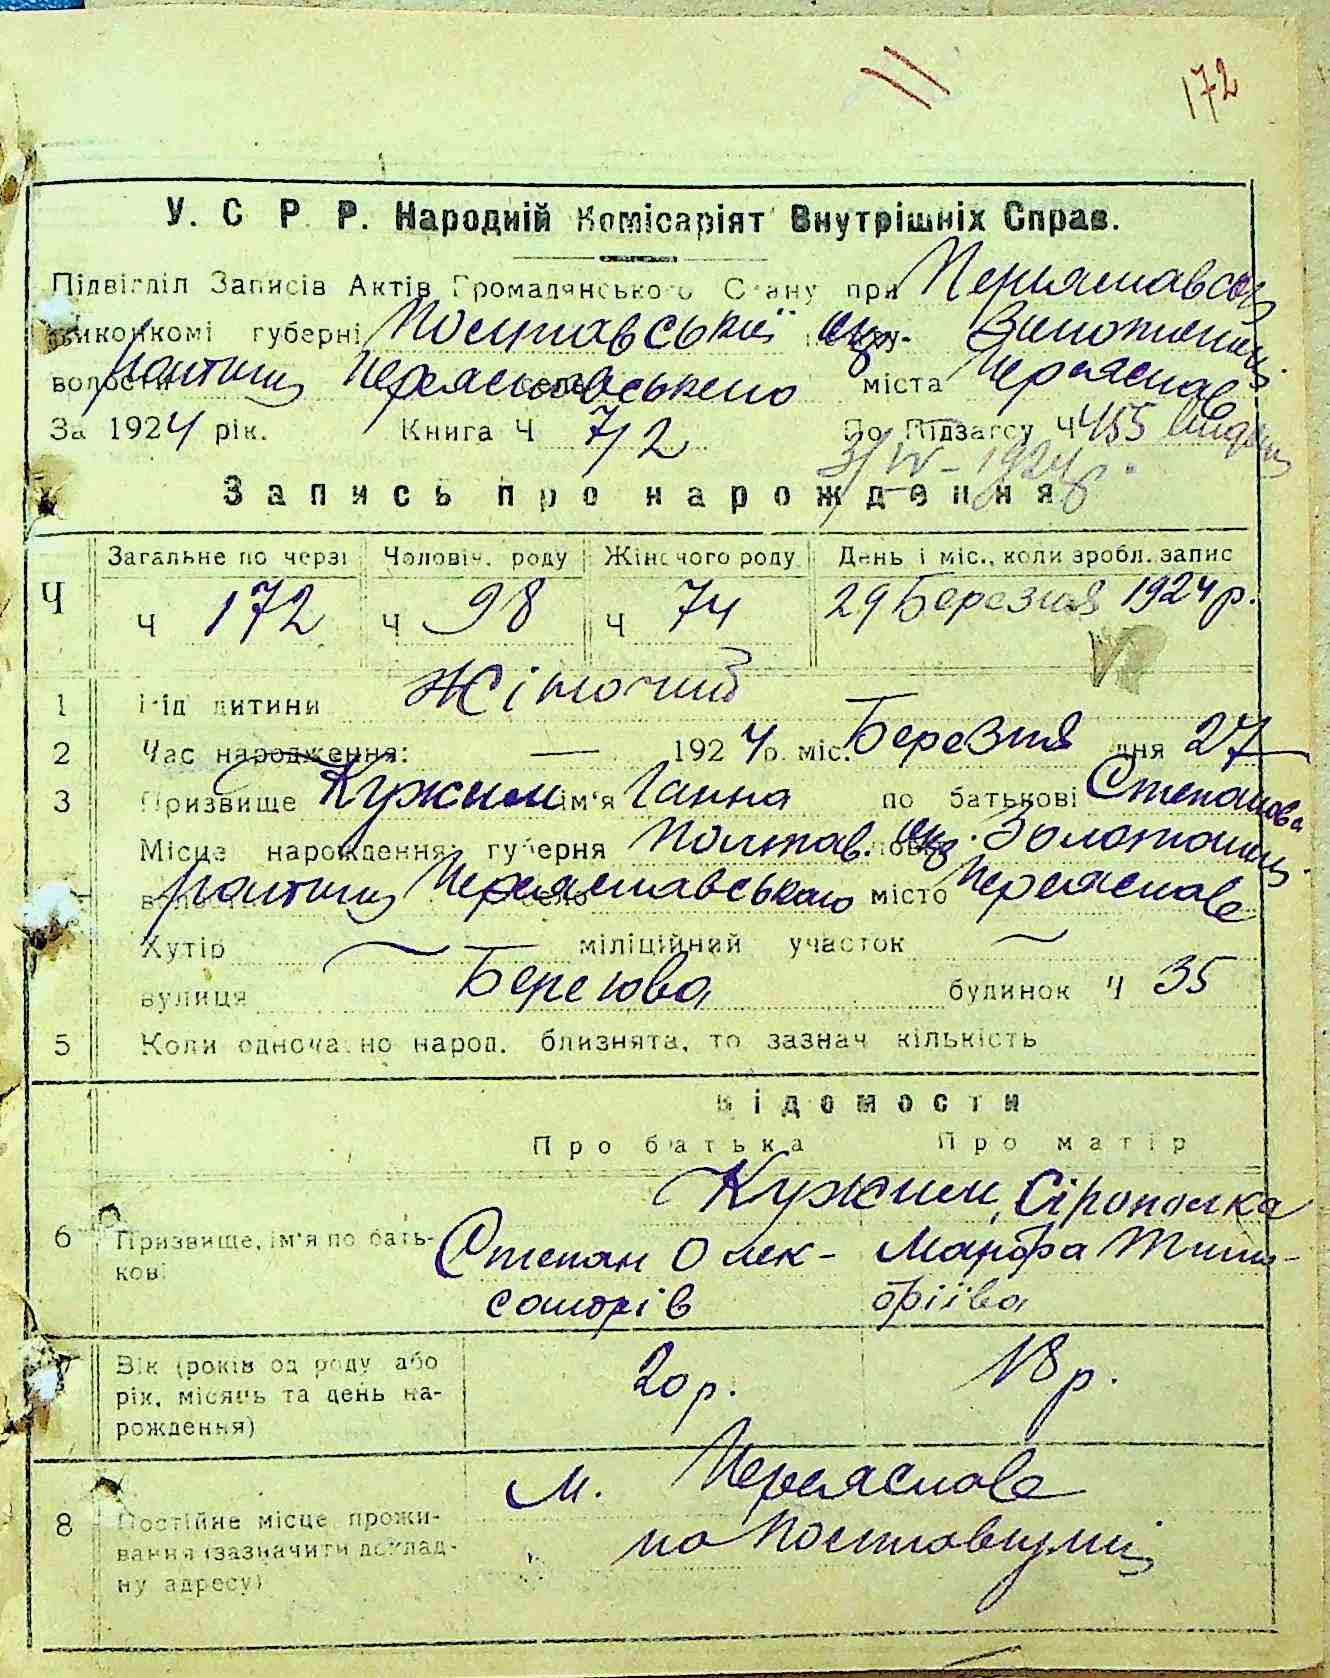 172
У. С Р Р. Народній Комісаріят Внутрішніх Справ.
Підвідділ Записів Актів Громадянського Стану при Переяславськ
виконкомі губерні Полтавської окр. Золотонош
волости Переяславського села міста Переяслав
За 1924 рік. Книга Ч 7/2 По Підзагсу Ч 455
3/IV - 1924р.
Запись про нарождення
Ч Загальне по черзі Чоловіч. роду Жіночого роду День і міс., коли зробл. запис
ч 172 ч 98 ч 74 29 Березня 1924 р.
1 Рід дитини Жіночий
2 Час народження: — 1924 р. міс. Березня дня 27
3 Призвище Кужим ім'я Ганна по батькові Степанова
Місце нарождення губерня Полтав. окр. Золотонош
волость Переяславського село місто Переяслав
Хутір — міліційний участок —
вулиця Берегова будинок Ч 35
5 Коли одночасно народ. близнята, то зазнач кількість
Відомости
Про батька Про матір
Кужим, Сірополка
6 Призвище, ім'я по бать- Степан Олек- Марфа Тимо-
кові сандрів фіїва
7 Вік (років од роду або 20 р. 18 р.
рік, місяць та день на-
рождення)
м. Переяслав
8 Постійне місце прожи- по
вання (зазначити доклад-
ну адресу)